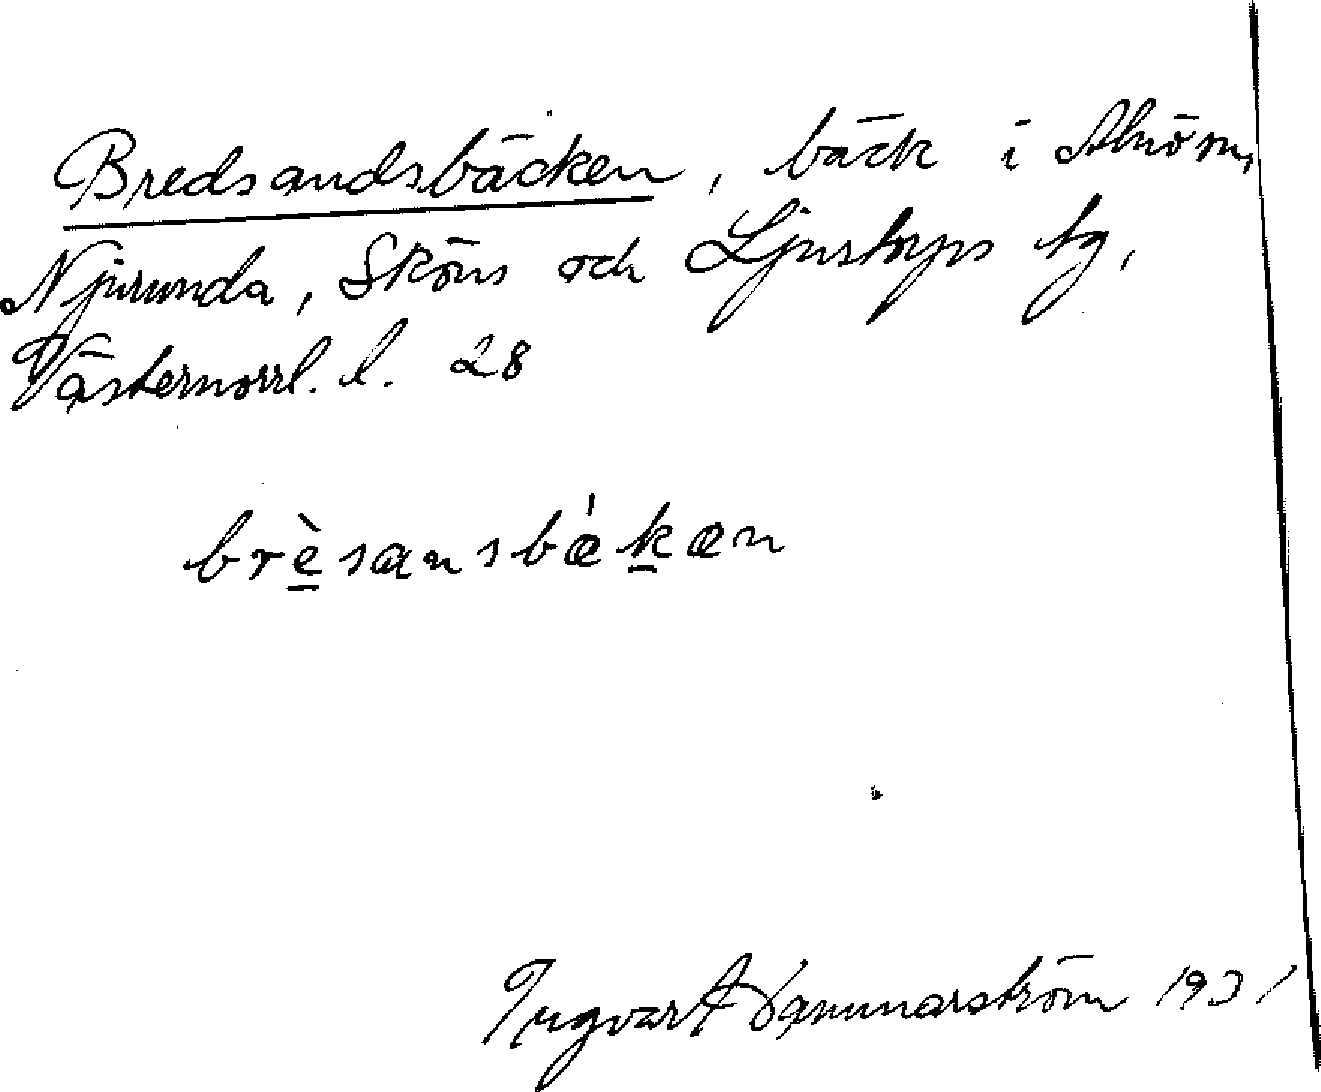 Bredsandsbäcken, bäck i Alnöm,
Njurunda, Sköns och Ljustorps tg,
Västernorrl. l. 28
brèsansbákæn
Ingvar 1931